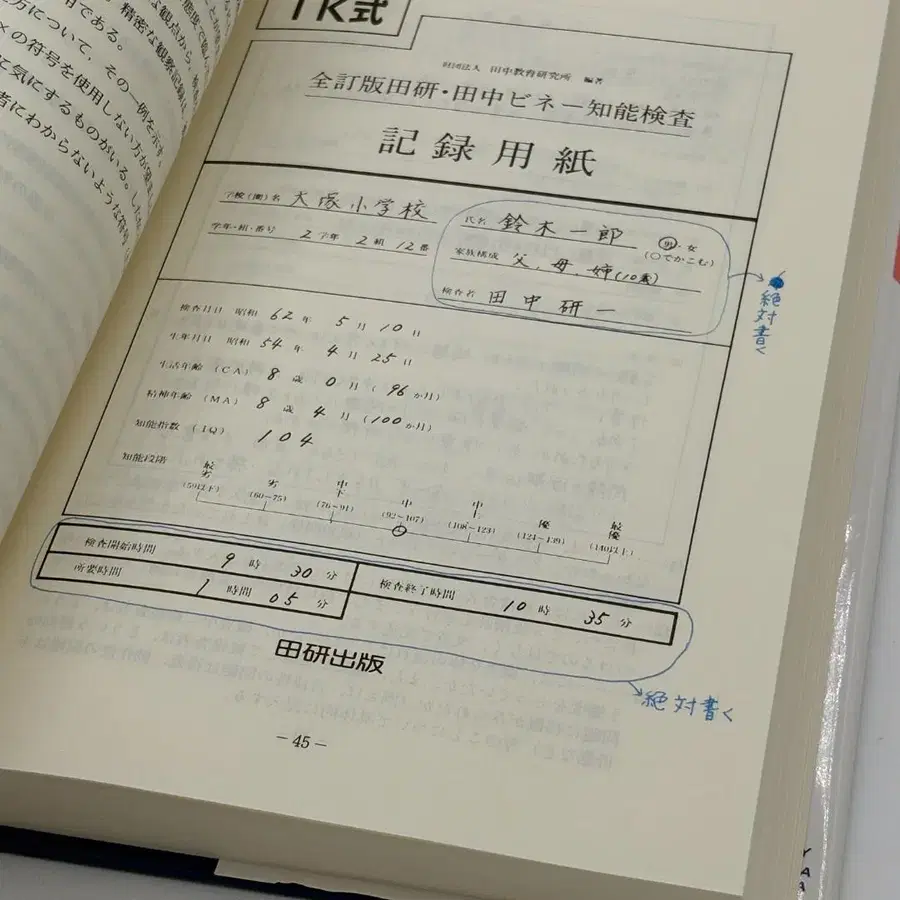 TK式
財団法人 田中教育研究所 編著
全訂版田研・田中ビネー知能検査
記録用紙
学校(園)名 大塚小学校
学年・組・番号 2学年 2組 12番
氏名 鈴木一郎 男・女
(○でかこむ)
家族構成 父、母、姉(10歳)
検査者 田中研一
絶対書く
検査月日 昭和 62年 5月 10日
生年月日 昭和 54年 4月 25日
生活年齢 (CA) 8歳 0月 (96か月)
精神年齢 (MA) 8歳 4月 (100か月)
知能指数 (IQ) 104
知能段階 最劣 劣 中下 中 中上 優 最優
(59以下) (60-75) (76-91) (92-107) (108-123) (124-139) (140以上)
検査開始時間 9時 30分
所要時間 1時間 05分
検査終了時間 10時 35分
絶対書く
田研出版
-45-
用である。
精密な観察記録
な観点から、
方について，その一例を示す。
×の符号を使用しない方が望まし
て気にするものがいる。した
者にわからないような符号
YAA